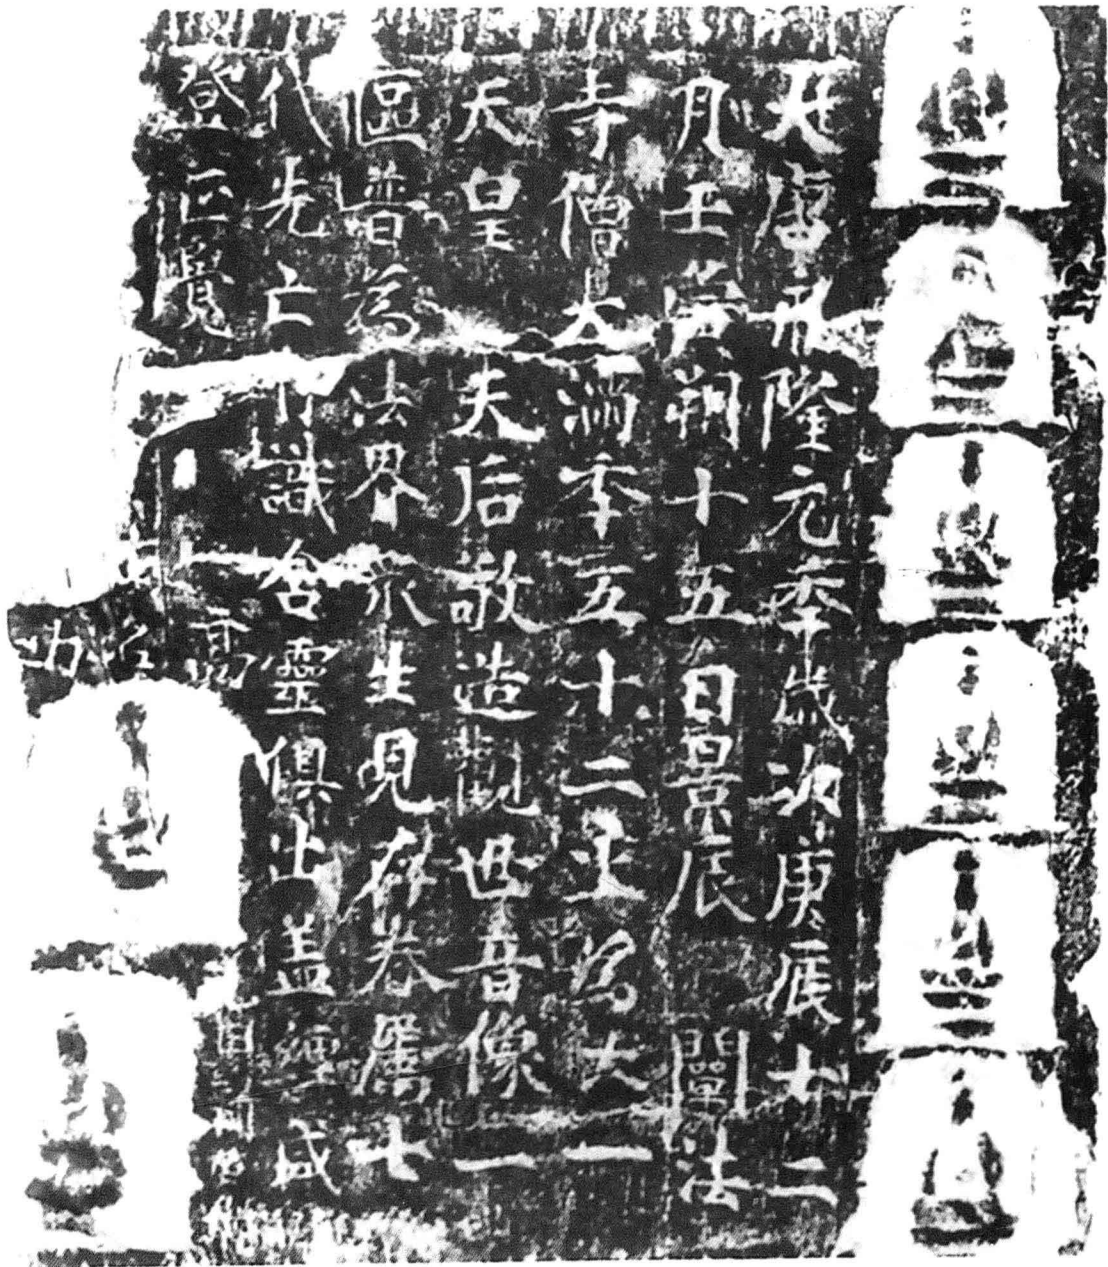 大唐永隆元年歲次庚辰十二
月壬寅朔十五日景辰闡法
寺僧大滿年五十二上爲大一
天皇天后敬造觀世音像一
區普爲法界眾生見存眷屬七
代先亡識含靈俱出蓋纏咸
登正覺